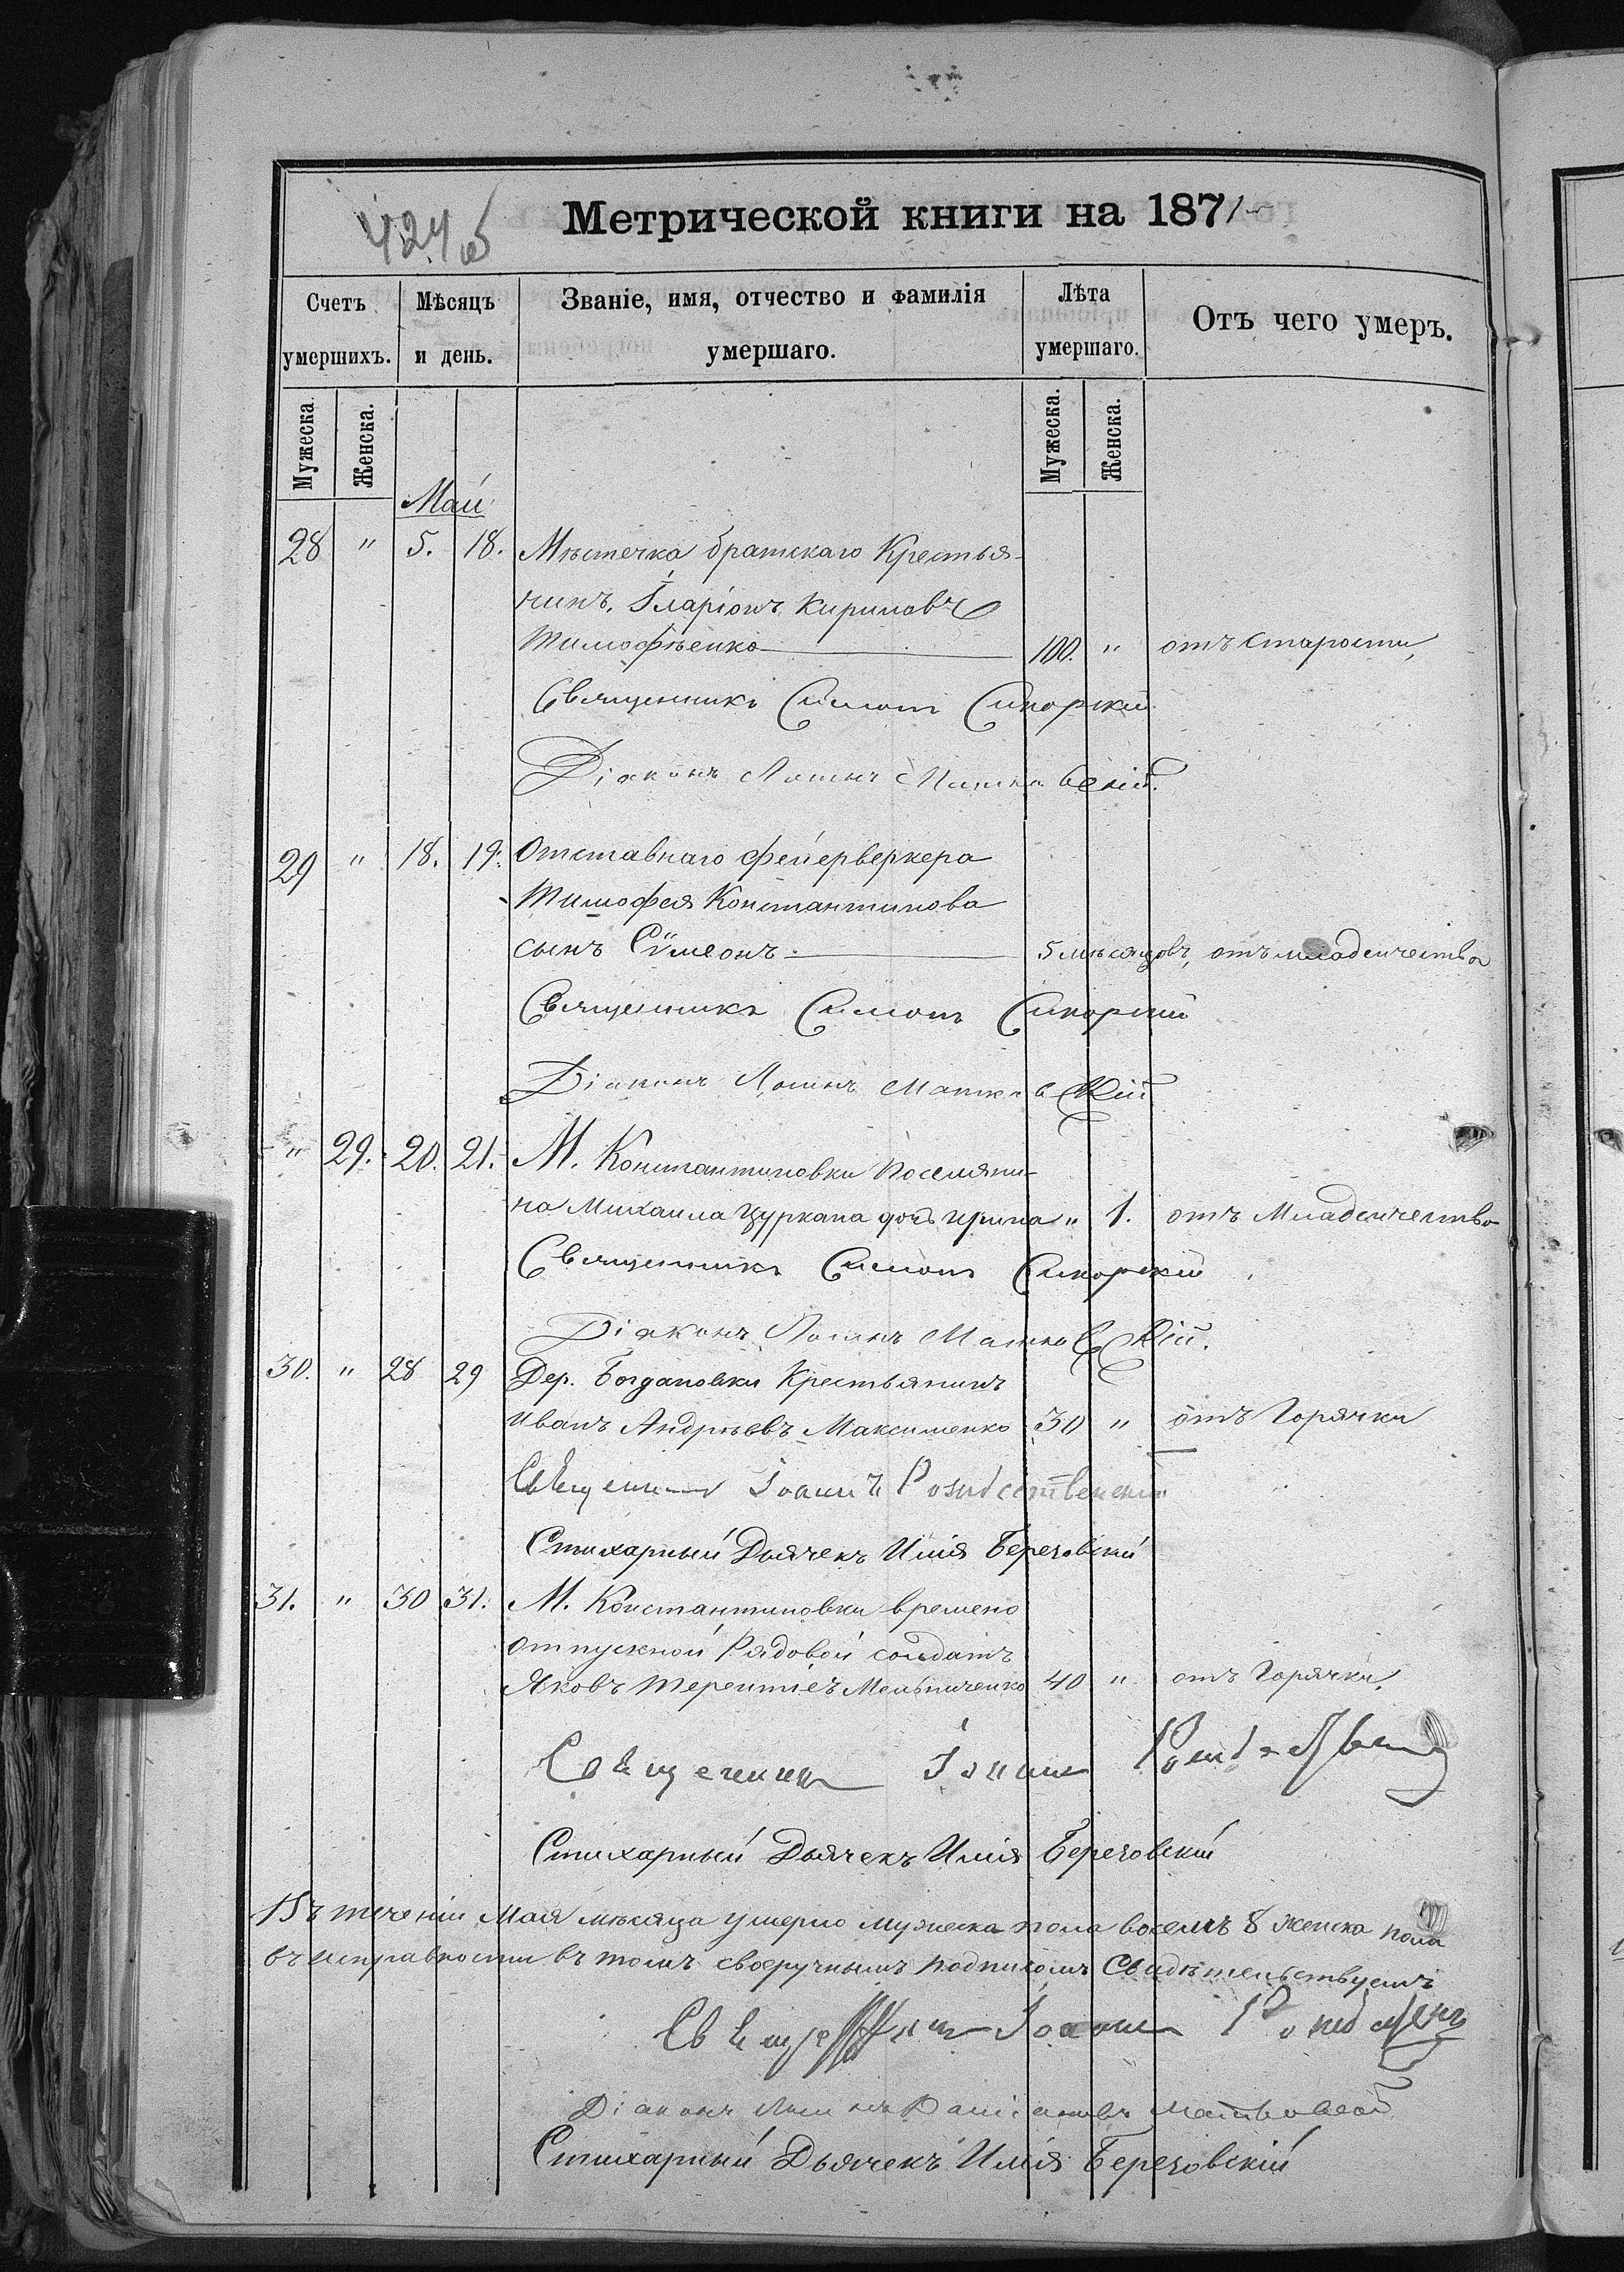 Метрической книги на 1871
424
Счетъ умершихъ.
Мѣсяцъ и день.
Званіе, имя, отчество и фамилія умершаго.
Лѣта умершаго.
Отъ чего умеръ.
Мужеска.
Женска.
Мужеска.
Женска.
Май
28 " 5. 18. Мѣстечка братскаго Крестья-
нинъ, Іларіонъ Кириловъ
Тимофѣенко 100. " отъ Старости,
Священникъ Симонъ Сикорскій
Діаконъ Логинъ Матковскій.
29 " 18. 19. Отставнаго фейерверкера
Тимофея Константинова
сынъ Сѵмеонъ 5 мѣсяцовъ, отъ младенчества
Священникъ Симонъ Сикорскій
Діаконъ Логинъ Матковскій
" 29. 20. 21. М. Константиновки поселяни-
на Михаила Цуркана дочь Ирина " 1. отъ Младенчества
Священникъ Симонъ Сикорскій
Діаконъ Логинъ Матковскій.
30. " 28 29 Дер. Богдановки Крестьянинъ
Иванъ Андрѣевъ Максименко 30 " отъ Горячки
Священникъ Іоаннъ Рождественскій
Стихарный Дьячекъ Илія Березовскій
31. " 30 31. М. Константиновки времено
отпускной Рядовой солдатъ
Яковъ Терентіевъ Мельниченко 40 " отъ Горячки,
Священникъ Іоаннъ
Стихарный Дьячекъ Илія Березовскій
Въ теченіи Мая мѣсяца умерло мужеска пола восемъ 8 женска пола
въ исправности въ томъ своеручнымъ подписомъ Свидѣтельствуемъ
Священникъ Іоаннъ
Діаконъ Логинъ Матковскій
Стихарный Дьячекъ Илія Березовскій